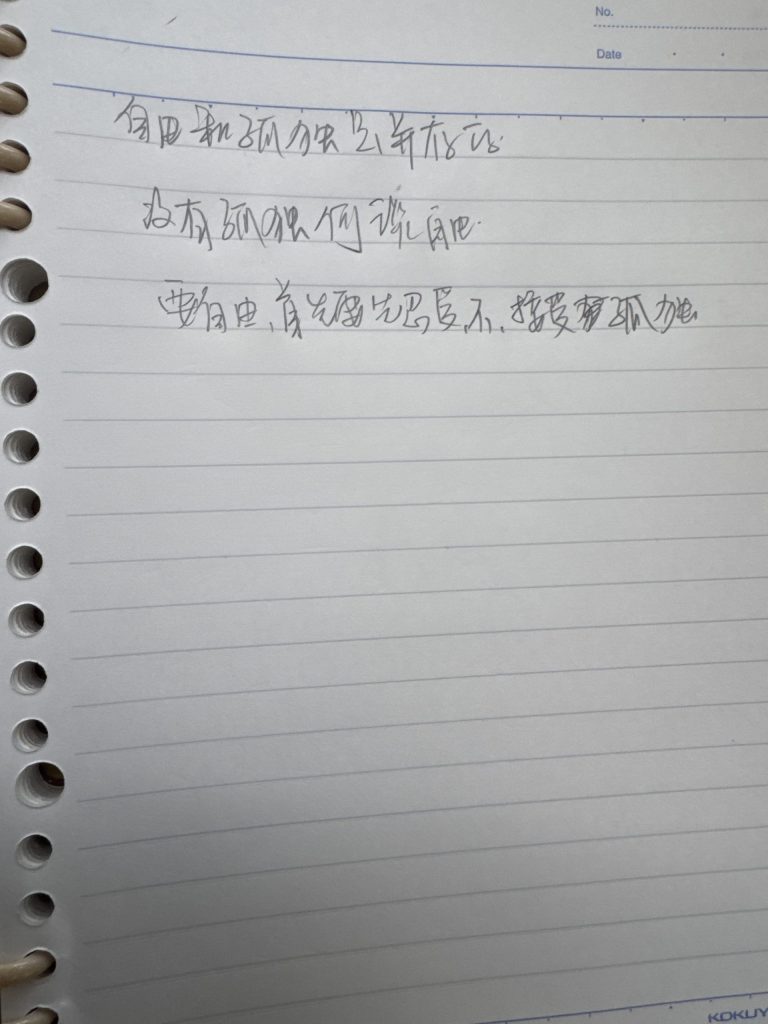 No.
Date
自由和孤独是并存的.
没有孤独何谈自由.
要自由,首先要先忍受,不,接受孤独
KOKUY